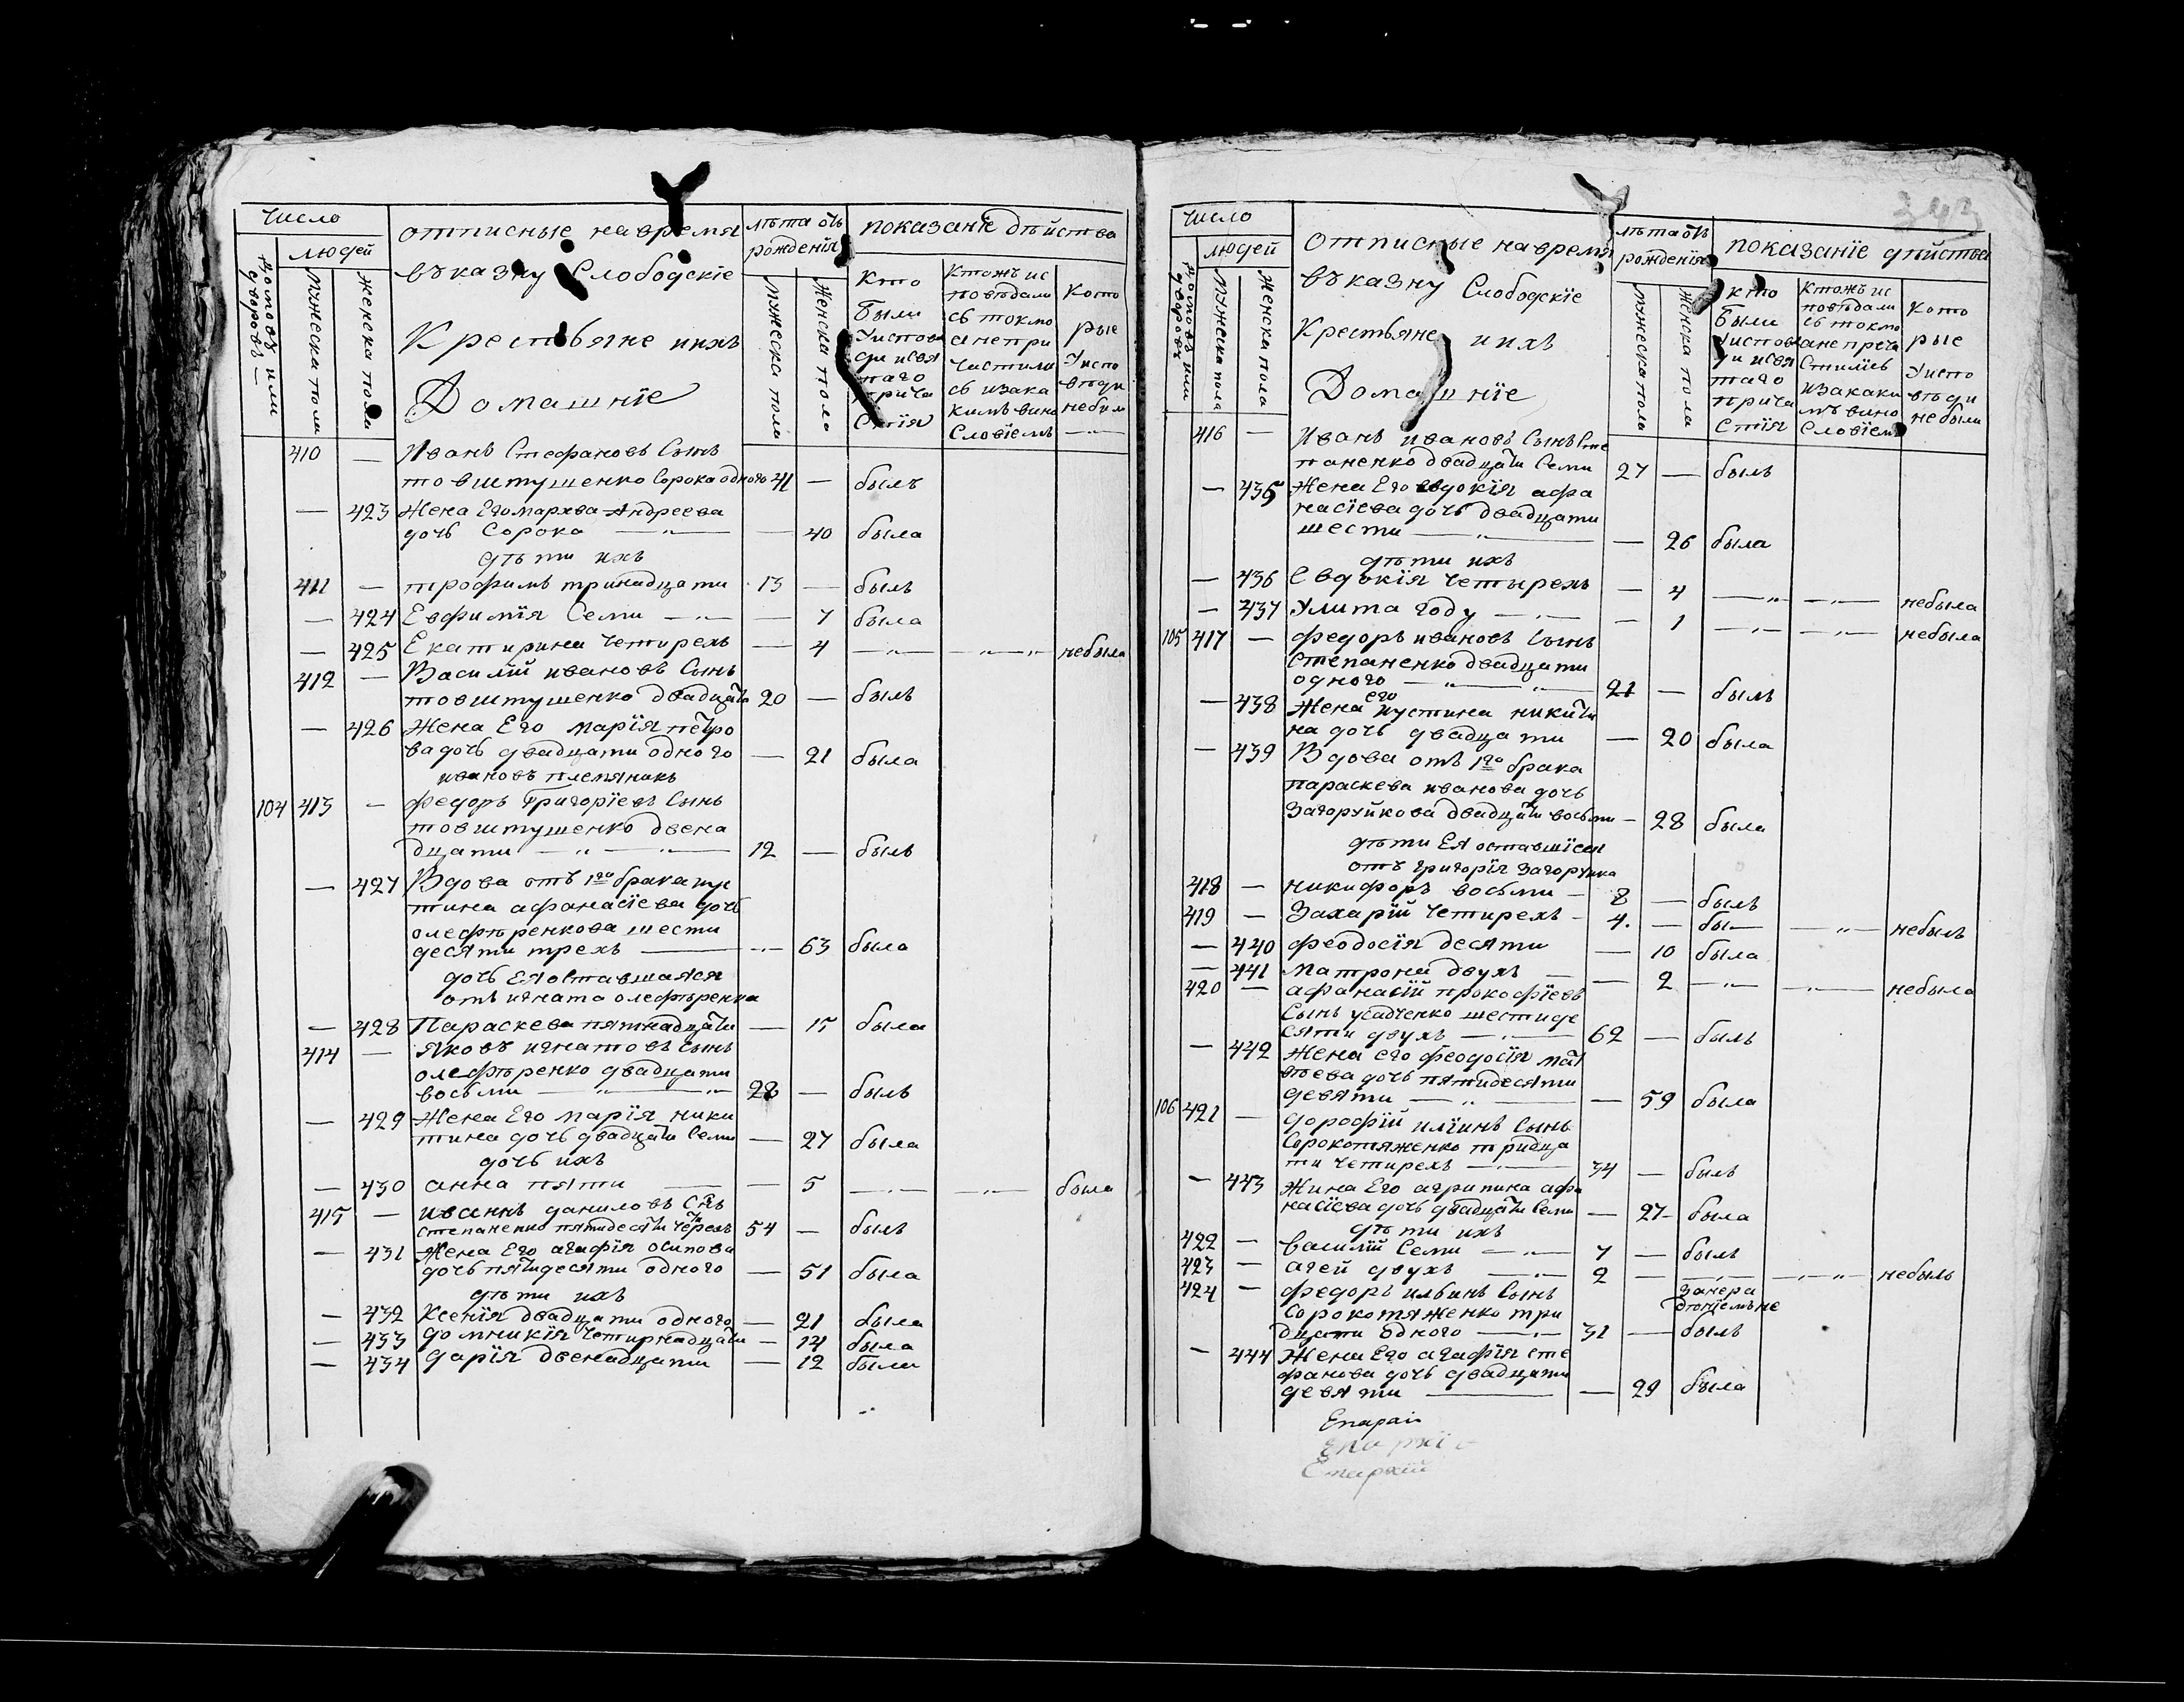 число
людей
домовъ или дворовъ
мужеска пола
женска пола
отписные на время
въ казну Слободскіе
Крестьяне и ихъ
Домашніе
лѣта отъ
рожденія
мужеска пола
женска пола
показаніе дѣйства
кто
были
у испове
ди и свя
таго
прича
стія
Ктожъ ис
повѣдали
сь токмо
а не при
частили
сь и за ка
кимъ вино
словіемъ
кото
рые
у испо
вѣди
небыли
410 — Иванъ Стефановъ Сынъ
товштушенко Сорока одного 41 — былъ
— 423 Жена Его марѳва Андреева
дочь Сорока — 40 была
дѣти ихъ
411 — трофимъ тринадцати 13 — былъ
— 424 Евфимія Семи — 7 была
— 425 Екатирина Четирехъ — 4 — — небыла
412 — Василій ивановъ Сынъ
товштушенко двадцати 20 — былъ
— 426 Жена Его марія петро
ва дочь двадцати одного — 21 была
ивановъ племяникъ
104 413 — федоръ Григоріевъ Сынъ
товштушенко двена
дцати — 12 — былъ
— 427 Вдова отъ 1го брака иус
тина афанасіева дочь
олефѣренкова шести
десяти трехъ — 63 была
дочь Ея оставшаяся
отъ игната олефѣренка
— 428 Параскева пятнадцати — 15 была
414 — Яковъ игнатовъ Сынъ
олефѣренко двадцати
восьми — 28 — былъ
— 429 Жена Его марія ники
тина дочь двадцати Семи — 27 была
дочь ихъ
— 430 анна пяти — 5 — — была
415 — иваннъ даниловъ Снъ
степаненко пятидесяти четирехъ 54 — былъ
— 431 Жена Его агафія осипова
дочь пятидесяти одного — 51 была
дѣти ихъ
— 432 Ксенія двадцати одного — 21 была
— 433 домникія Четирнадцати — 14 была
— 434 дарія двенадцати — 12 были
343
число
людей
домовъ или дворовъ
мужеска пола
женска пола
отписные на время
въ казну Слободскіе
Крестьяне и ихъ
Домашніе
лѣта отъ
рожденія
мужеска пола
женска пола
показаніе дѣйства
кто
были
у испове
ди и свя
таго
прича
стія
Ктожъ ис
повѣдали
сь токмо
а не прича
стились
и за каки
мъ вино
словіемъ
кото
рые
у испо
вѣди
небыли
416 — Иванъ ивановъ Сынъ Сте
паненко двадцати Семи 27 — былъ
— 435 Жена Его евдокія афа
насіева дочь двадцати
шести — 26 была
дѣти ихъ
— 436 Евдокія Четырехъ — 4 — — небыла
— 437 Улита году — 1 — — небыла
105 417 — федоръ ивановъ Сынъ
степаненко двадцати
одного — 21 — былъ
— 438 Жена его иустина никити
на дочь двадцати — 20 была
— 439 Вдова отъ 1го брака
параскева иванова дочь
Загоруйкова двадцати восьми — 28 была
дѣти Ея оставшіеся
отъ григорія загоруика
418 — никифоръ восьми — 8 — былъ
419 — Захарій Четирехъ — 4. — бы — — небылъ
— 440 феодосія десяти — 10 была
— 441 матрона двухъ — 2 — — небыла
420 — афанасій прокофіевъ
Сынъ усадченко шестиде
сяти двухъ — 62 — былъ
— 442 Жена его феодосія мат
вѣева дочь пятидесяти
девяти — 59 была
106 421 — дорофій иліинъ Сынъ
Сорокотяженко тридца
ти четирехъ — 34 — былъ
— 443 Жина Его агрипина афа
насіева дочь двадцати Семи — 27 — была
дѣти ихъ
422 — василій Семи — 7 — былъ
423 — агей двухъ — 2 — — — небылъ
424 — федоръ ильинъ Сынъ
Сорокотяженко три
дцати одного — 31 — занера
дѣніемъ не
былъ
— 444 Жена Его агафія сте
фанова дочь двадцати
девяти — 29 была
Епархі
Епархіи
Епархій